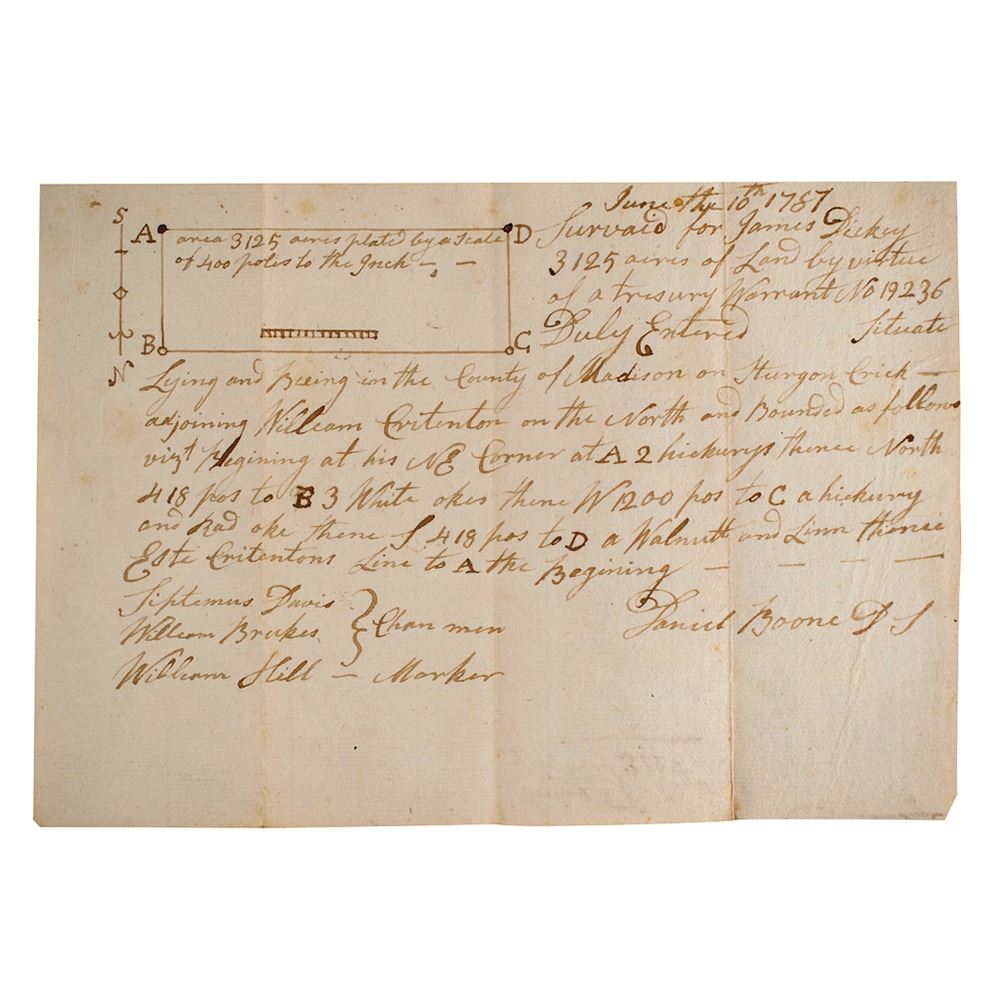 June the 10th 1787
S
A
area 3125 acres plated by a Scale
of 400 poles to the Inch - -
D
B
C
N
Survaid for James Dickey
3125 acres of Land by virtue
of a tresury Warrant No 19236
Duly Entered Situate
Lying and Beeing in the County of Madison on Sturgon Crick —
adjoining William Critenton on the North and Bounded as follows
vizt Begining at his NE Corner at A 2 hickurys thence North
418 pos to B 3 White okes thene W 1200 pos to C a hickury
and Rad oke thene S 418 pos to D a Walnutt and Linn thence
Este Critentons Line to A the Begining — — — —
Siptemus Davis
William Brukes } Chan men
William Hill — Marker
Daniel Boone D S